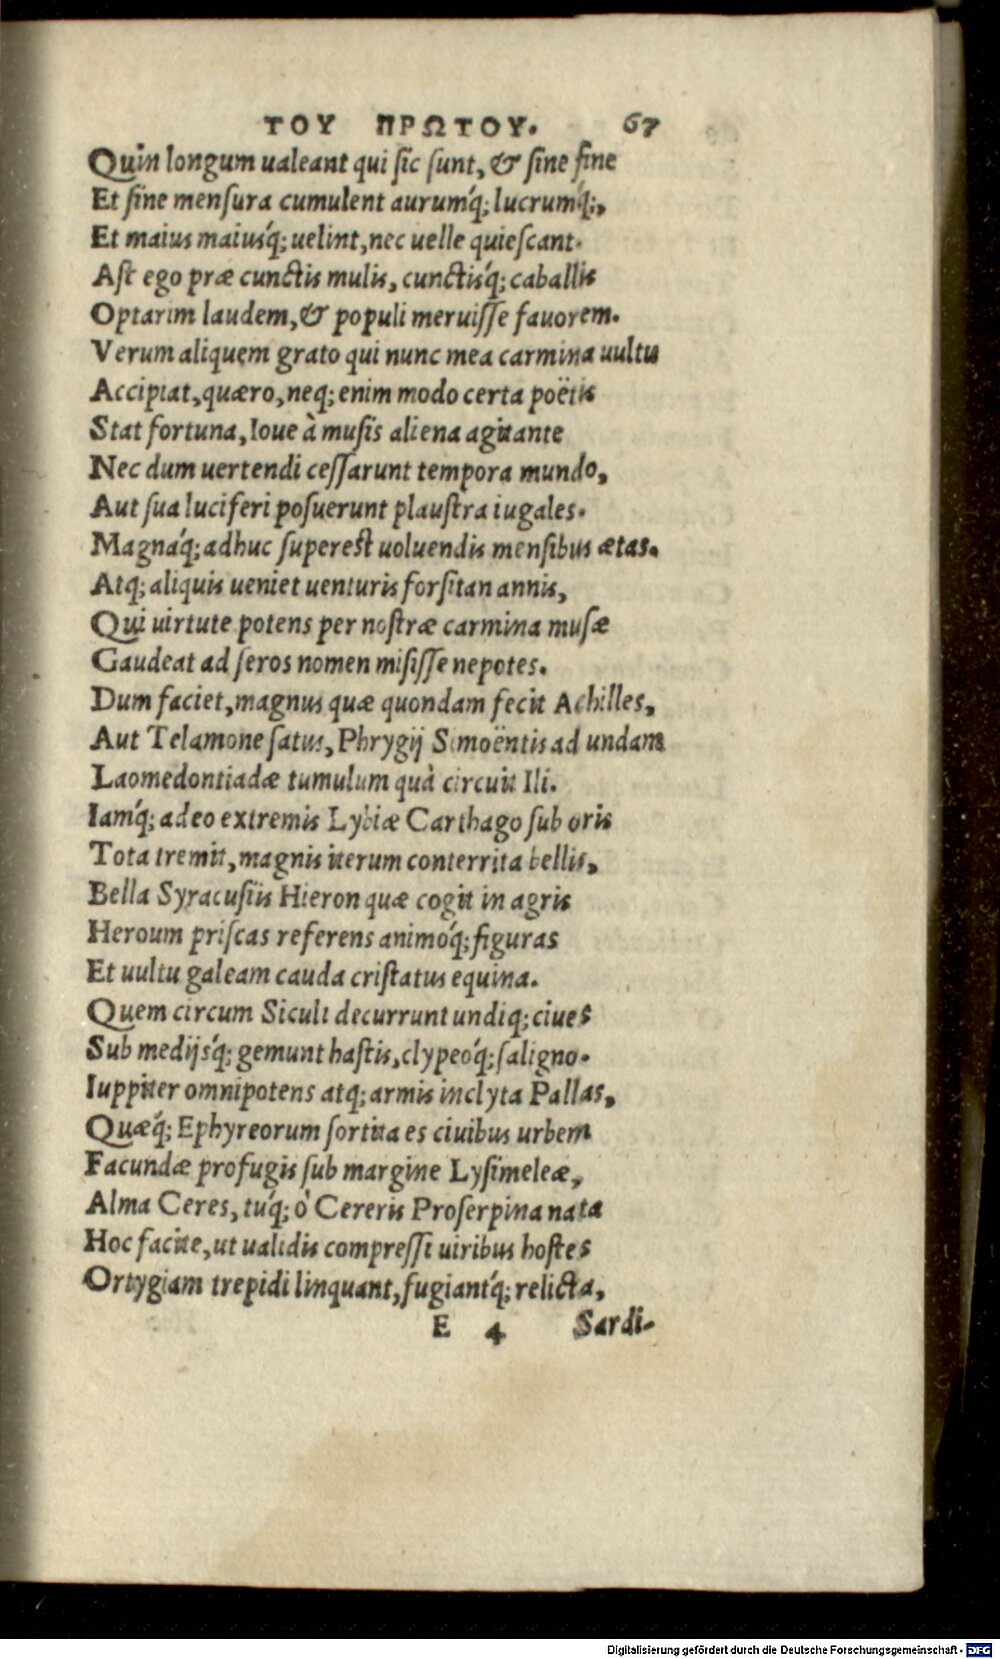 ΤΟΥ ΠΡΩΤΟΥ. 67
Quin longum ualeant qui ſic ſunt, & ſine fine
Et ſine menſura cumulent aurumq́; lucrumq́;,
Et maius maiusq́; uelint, nec uelle quieſcant.
Aſt ego præ cunctis mulis, cunctisq́; caballis
Optarim laudem, & populi meruiſſe fauorem.
Verum aliquem grato qui nunc mea carmina uultu
Accipiat, quæro, neq; enim modo certa poëtis
Stat fortuna, Ioue à muſis aliena agitante
Nec dum uertendi ceſſarunt tempora mundo,
Aut ſua luciferi poſuerunt plauſtra iugales.
Magnaq́; adhuc ſupereſt uoluendis menſibus ætas.
Atq; aliquis ueniet uenturis forſitan annis,
Qui uirtute potens per noſtræ carmina muſæ
Gaudeat ad ſeros nomen miſiſſe nepotes.
Dum faciet, magnus quæ quondam fecit Achilles,
Aut Telamone ſatus, Phrygij Simoëntis ad undam
Laomedontiadæ tumulum quà circuit Ili.
Iamq́; adeo extremis Lybiæ Carthago ſub oris
Tota tremit, magnis iterum conterrita bellis,
Bella Syracuſiis Hieron quæ cogit in agris
Heroum priſcas referens animoq́; figuras
Et uultu galeam cauda criſtatus equina.
Quem circum Siculi decurrunt undiq; ciues
Sub medijsq́; gemunt haſtis, clypeoq́; ſaligno.
Iuppiter omnipotens atq; armis inclyta Pallas,
Quæq́; Ephyreorum ſortita es ciuibus urbem
Facundæ profugis ſub margine Lyſimeleæ,
Alma Ceres, tuq́; ò Cereris Proſerpina nata
Hoc facite, ut ualidis compreſſi uiribus hoſtes
Ortygiam trepidi linquant, fugiantq́; relicta,
E 4 Sardi-
Digitalisierung gefördert durch die Deutsche Forschungsgemeinschaft - DFG